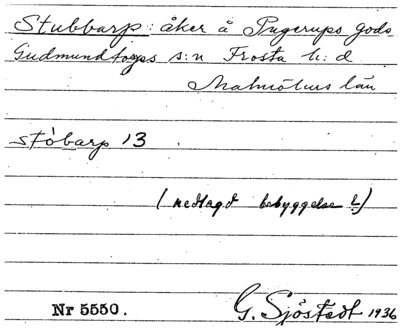 Stubbarp: åker å Pugerups gods
Gudmundtorps s:n Frosta h:d
Malmöhus län
stóbarp 13
(nedlagd bebyggelse?)
Nr 5550.
G. Sjöstedt 1936